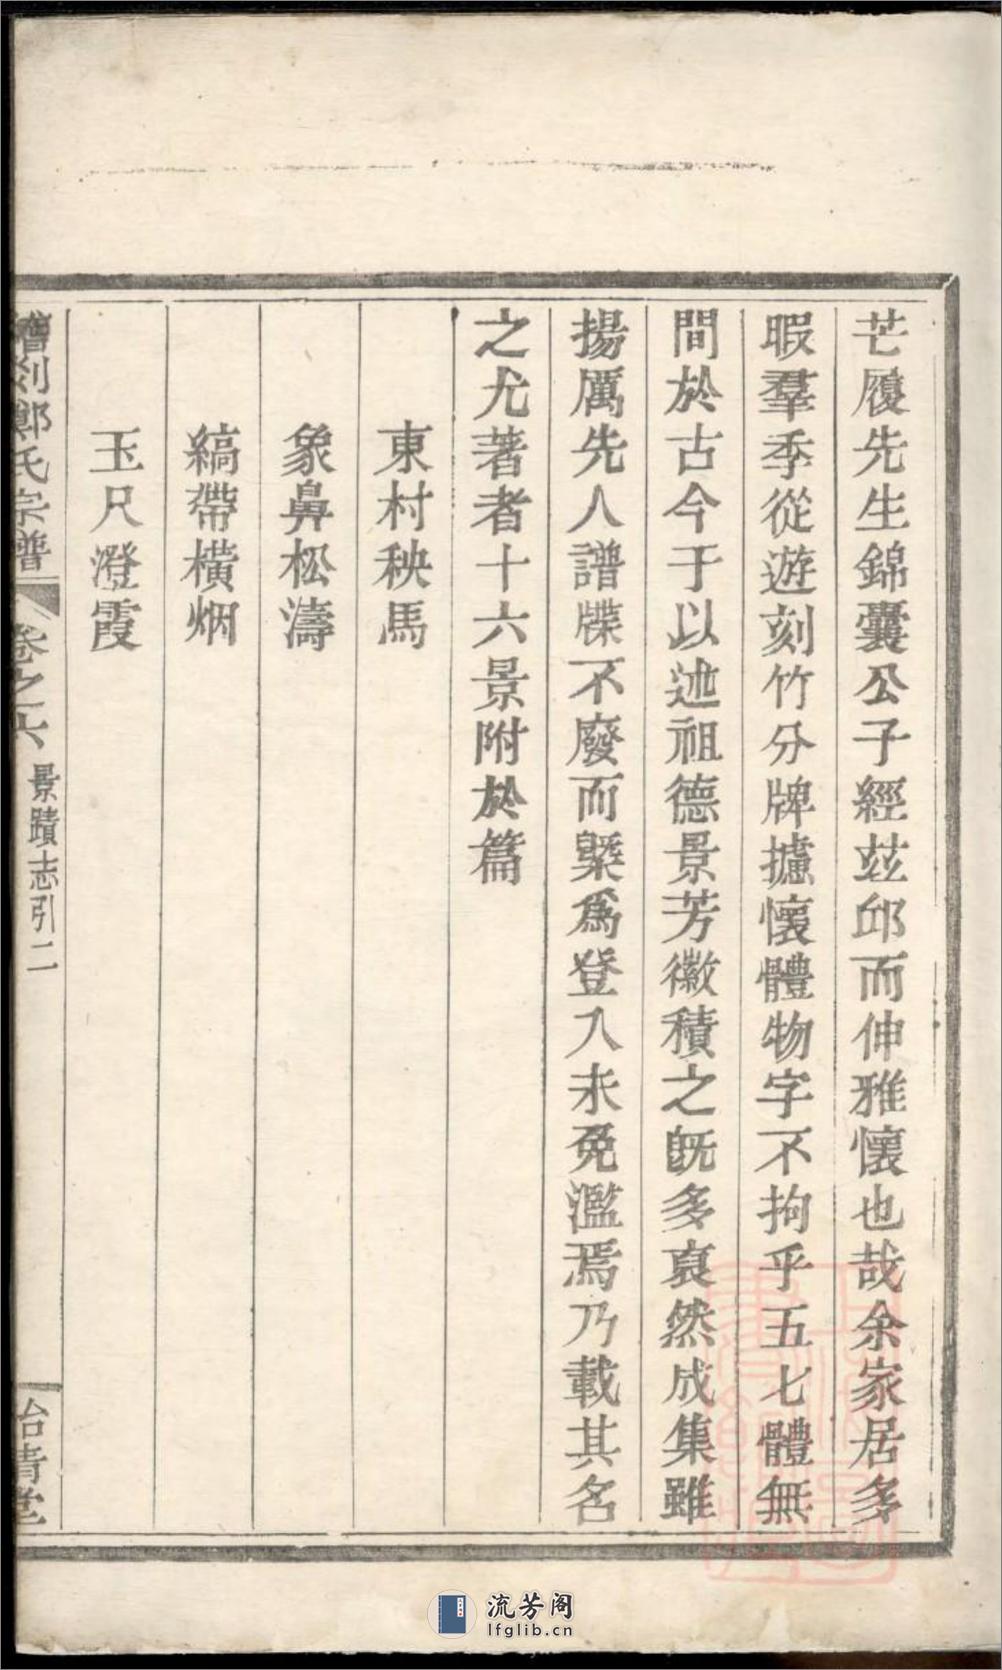 芒履先生錦囊公子經玆邱而伸雅懷也哉余家居多
暇羣季從遊刻竹分牌攄懷體物字不拘乎五七體無
間於古今于以述祖德景芳徽積之既多裒然成集雖
揚厲先人譜牒不廢而槩爲登入未免濫焉乃載其名
之尤著者十六景附於篇
東村秧馬
象鼻松濤
縞帶橫烟
玉尺澄霞
鄭氏宗譜
卷之六
景蹟志引二
青堂
流芳阁
lfglib.cn